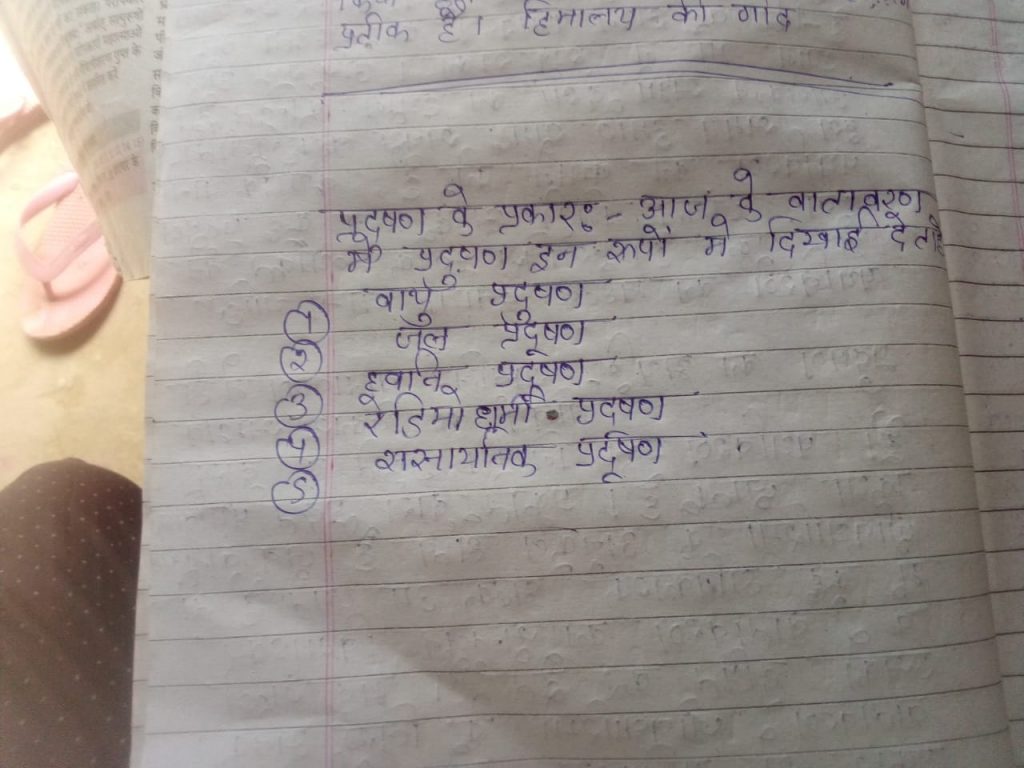 प्रतीक है। हिमालय की गोद
प्रदूषण के प्रकारः- आज के वातावरण
में प्रदूषण इन रूपों मे दिखाई देता है
1 वायु प्रदूषण
2 जल प्रदूषण
3 ध्वनि प्रदूषण
4 रेडियोधर्मी प्रदषण
5 रासायनिक प्रदूषण